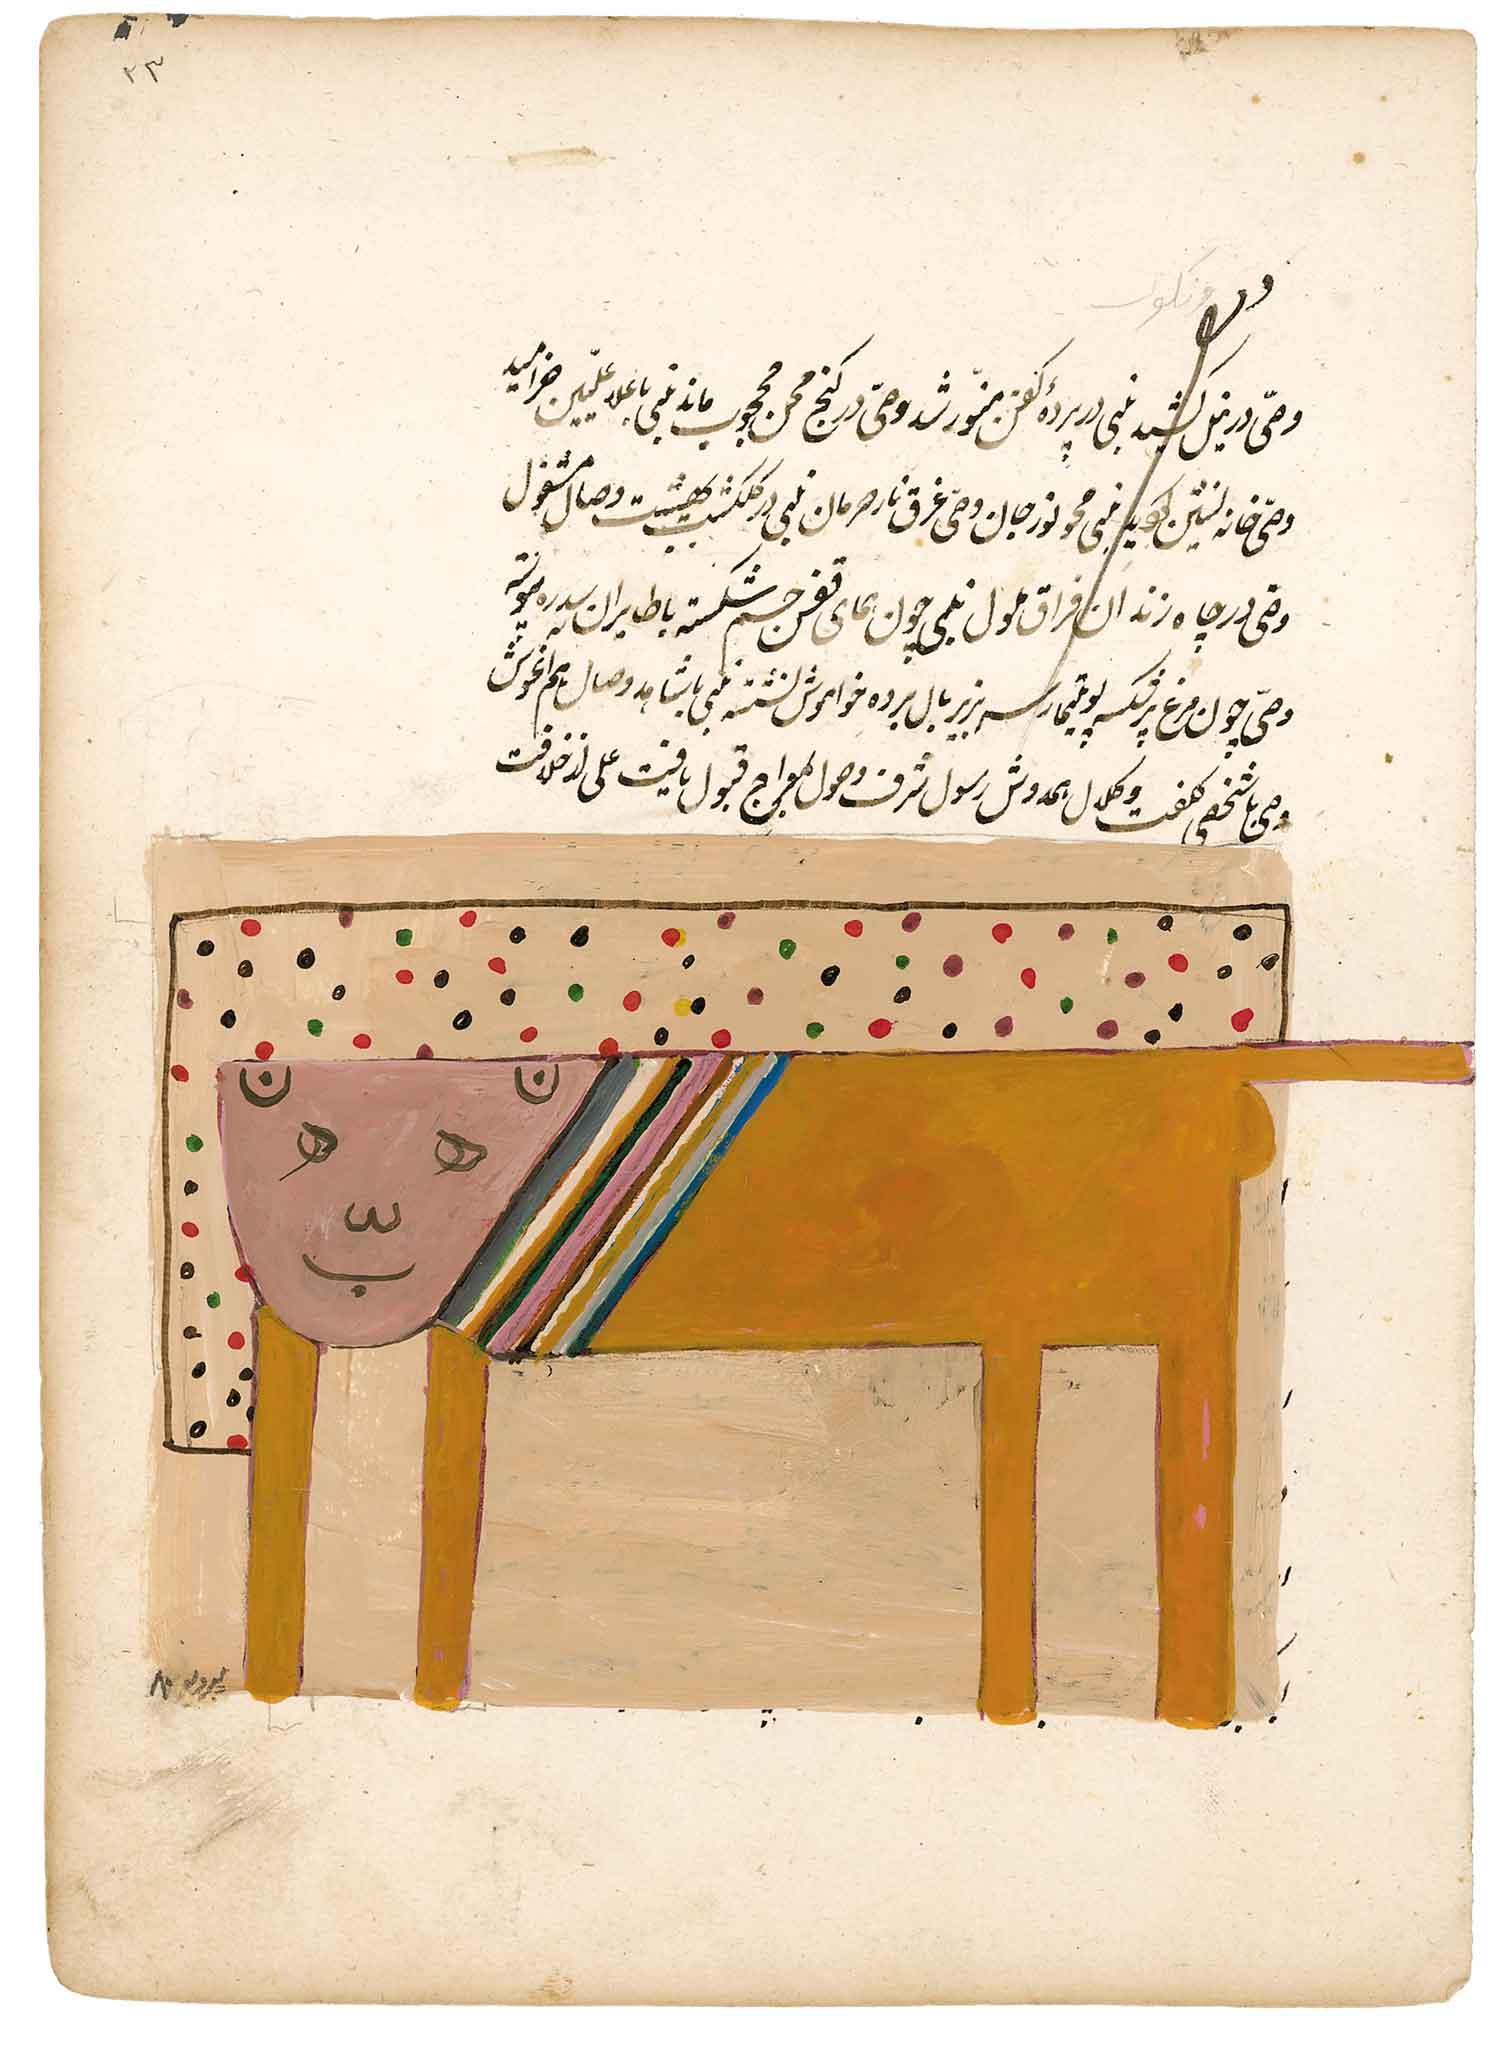 ۲۳
و
وصی در نیل کشید نبی در پردهٔ کفن مستور شد وصی در کنج محن محجوب ماند نبی باعلا علیین خرامید
وصی خانه نشین گردید نبی محو نور جان وصی غرق نار حرمان نبی در گلگشت بهشت وصال مشغول
وصی در چاه زندان فراق ملول نبی چون همای قفس جسم شکسته با طایران سدره پیوسته
وصی چون مرغ پرشکسته سر بزیر بال برده خواموش نشسته نبی با شاهد وصال هم آغوش
وصی با شخص کلفت و کلال همدوش رسول شرف وصول بمعراج قبول یافت علی از خلافت
ن ن
ه ه
س
ب